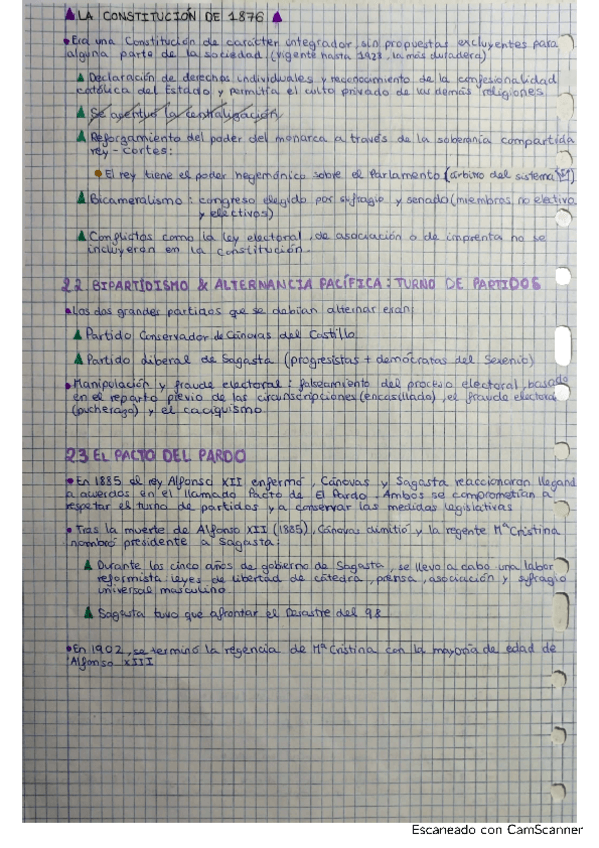 LA CONSTITUCIÓN DE 1876
• Era una Constitución de carácter integrador, sin propuestas excluyentes para
alguna parte de la sociedad (vigente hasta 1923, la más duradera)
Declaración de derechos individuales y reconocimiento de la confesionalidad
católica del Estado y permitía el culto privado de las demás religiones
Se acentuó la centralización
Reforzamiento del poder del monarca a través de la soberanía compartida
rey - Cortes:
El rey tiene el poder hegemónico sobre el Parlamento (árbitro del sistema
Bicameralismo: congreso elegido por sufragio y senado (miembros no electivos
y electivos)
Conflictos como la ley electoral, de asociación o de imprenta no se
incluyeron en la constitución.
2.2 BIPARTIDISMO & ALTERNANCIA PACÍFICA: TURNO DE PARTIDOS
• Los dos grandes partidos que se debían alternar eran:
Partido Conservador de Cánovas del Castillo
Partido Liberal de Sagasta (progresistas + demócratas del Sexenio)
• Manipulación y fraude electoral: falseamiento del proceso electoral, basado
en el reparto previo de las circunscripciones (encasillado), el fraude electoral
(pucherazo) y el caciquismo.
2.3 EL PACTO DEL PARDO
• En 1885 el rey Alfonso XII enfermó, Cánovas y Sagasta reaccionaron llegand
a acuerdos en el llamado Pacto de El Pardo. Ambos se comprometían a
respetar el turno de partidos y a conservar las medidas legislativas
• Tras la muerte de Alfonso XII (1885), Cánovas dimitió y la regente Mª Cristina
nombró presidente a Sagasta:
Durante los cinco años de gobierno de Sagasta, se llevó a cabo una labor
reformista: leyes de libertad de cátedra, prensa, asociación y sufragio
universal masculino.
Sagasta tuvo que afrontar el Desastre del 98
• En 1902, se terminó la regencia de Mª Cristina con la mayoría de edad de
Alfonso XIII
Escaneado con CamScanner